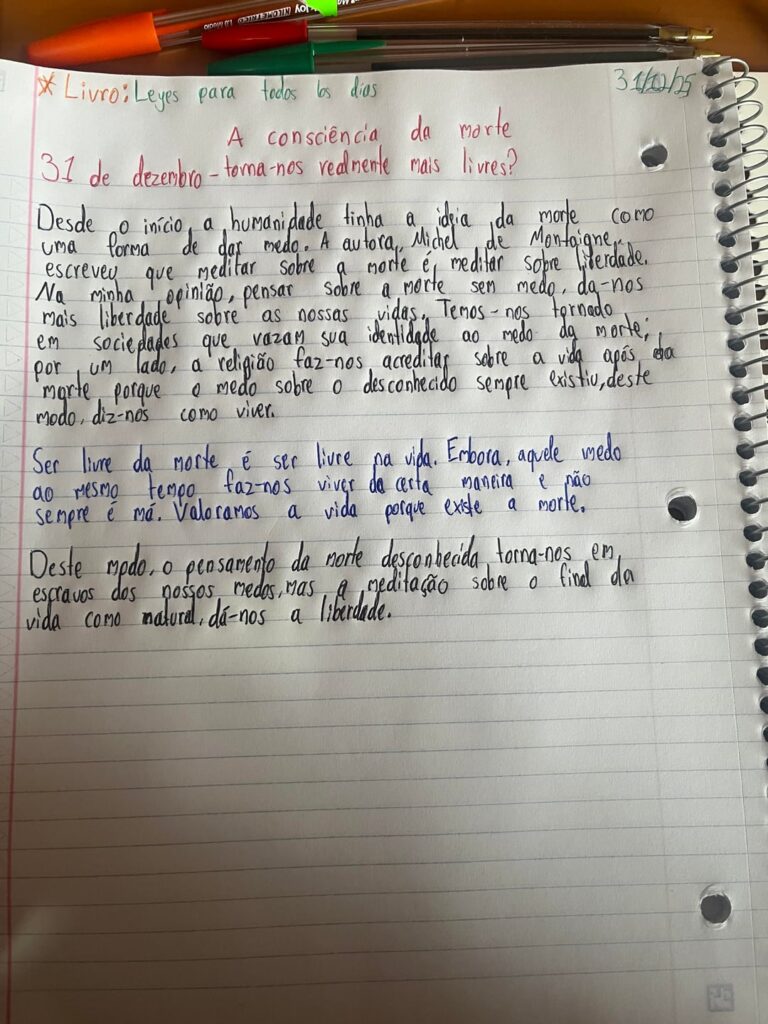 * Livro: Leyes para todos los dias
31/12/25
A consciência da morte
31 de dezembro - torna-nos realmente mais livres?
Desde o início, a humanidade tinha a ideia da morte como
uma forma de dar medo. A autora, Michel de Montaigne,
escreveu que meditar sobre a morte é, meditar sobre liberdade.
Na minha opinião, pensar sobre a morte sem medo, da-nos
mais liberdade sobre as nossas vidas. Temos-nos tornado
em sociedades que vazam sua identidade ao medo da morte;
por um lado, a religião faz-nos acreditar sobre a vida após da
morte porque o medo sobre o desconhecido sempre existiu, deste
modo, diz-nos como viver.
Ser livre da morte é ser livre na vida. Embora, aquele medo
ao mesmo tempo faz-nos viver da certa maneira e não
sempre é má. Valoramos a vida porque existe a morte.
Deste modo, o pensamento da morte desconhecida torna-nos em
escravos dos nossos medos, mas a meditação sobre o final da
vida como natural, dá-nos a liberdade.